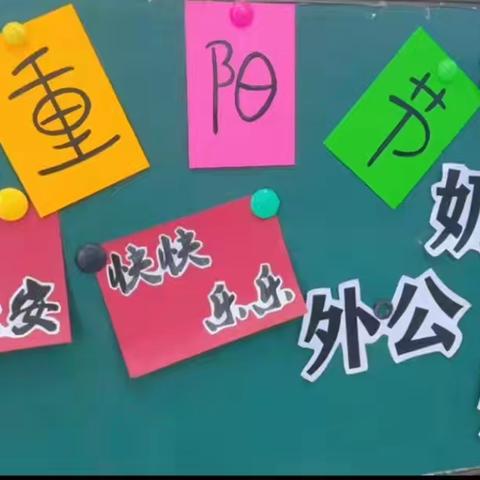 重阳节
安
快快
乐乐
外公
奶